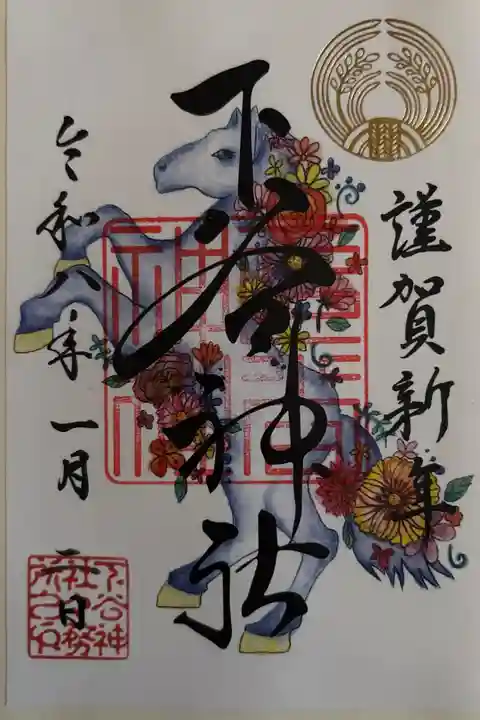 謹賀新年
下谷神社
令和八年一月二日
下谷神
社社務
所之印